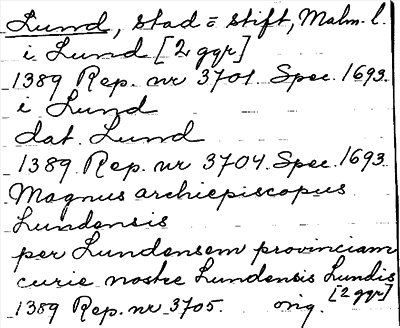 Lund, stad = stift, Malm. l.
i Lund [2 ggr]
1389 Rep. nr 3701. Spec. 1693.
i Lund
dat. Lund
1389 Rep. nr 3704. Spec. 1693.
Magnus archiepiscopus
Lundensis
per Lundensem provinciam
curie nostre Lundensis Lundis
[2 ggr]
1389 Rep. nr 3705. orig.